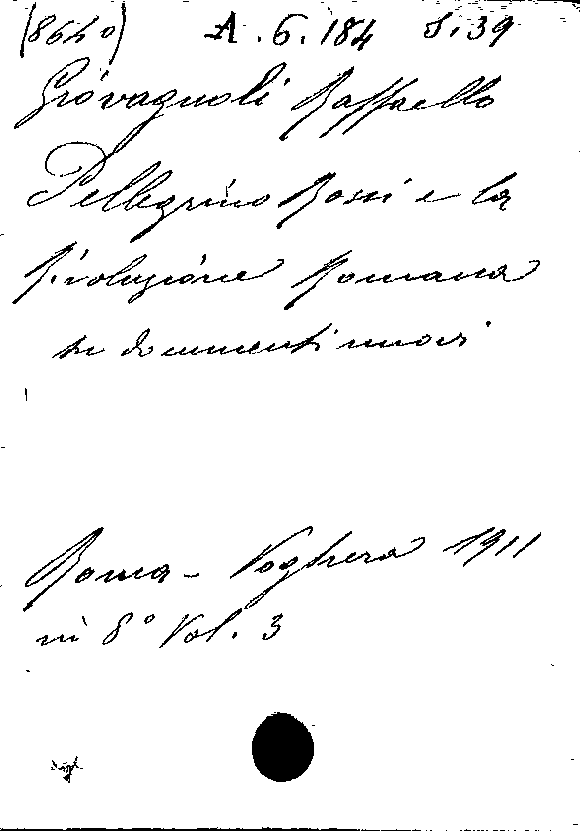 (8640) A.6.184 S.39
Giovagnoli Raffaello
Pellegrino Rossi e la
Rivoluzione Romana
su documenti nuovi
Roma - Voghera 1911
in 8° Vol. 3